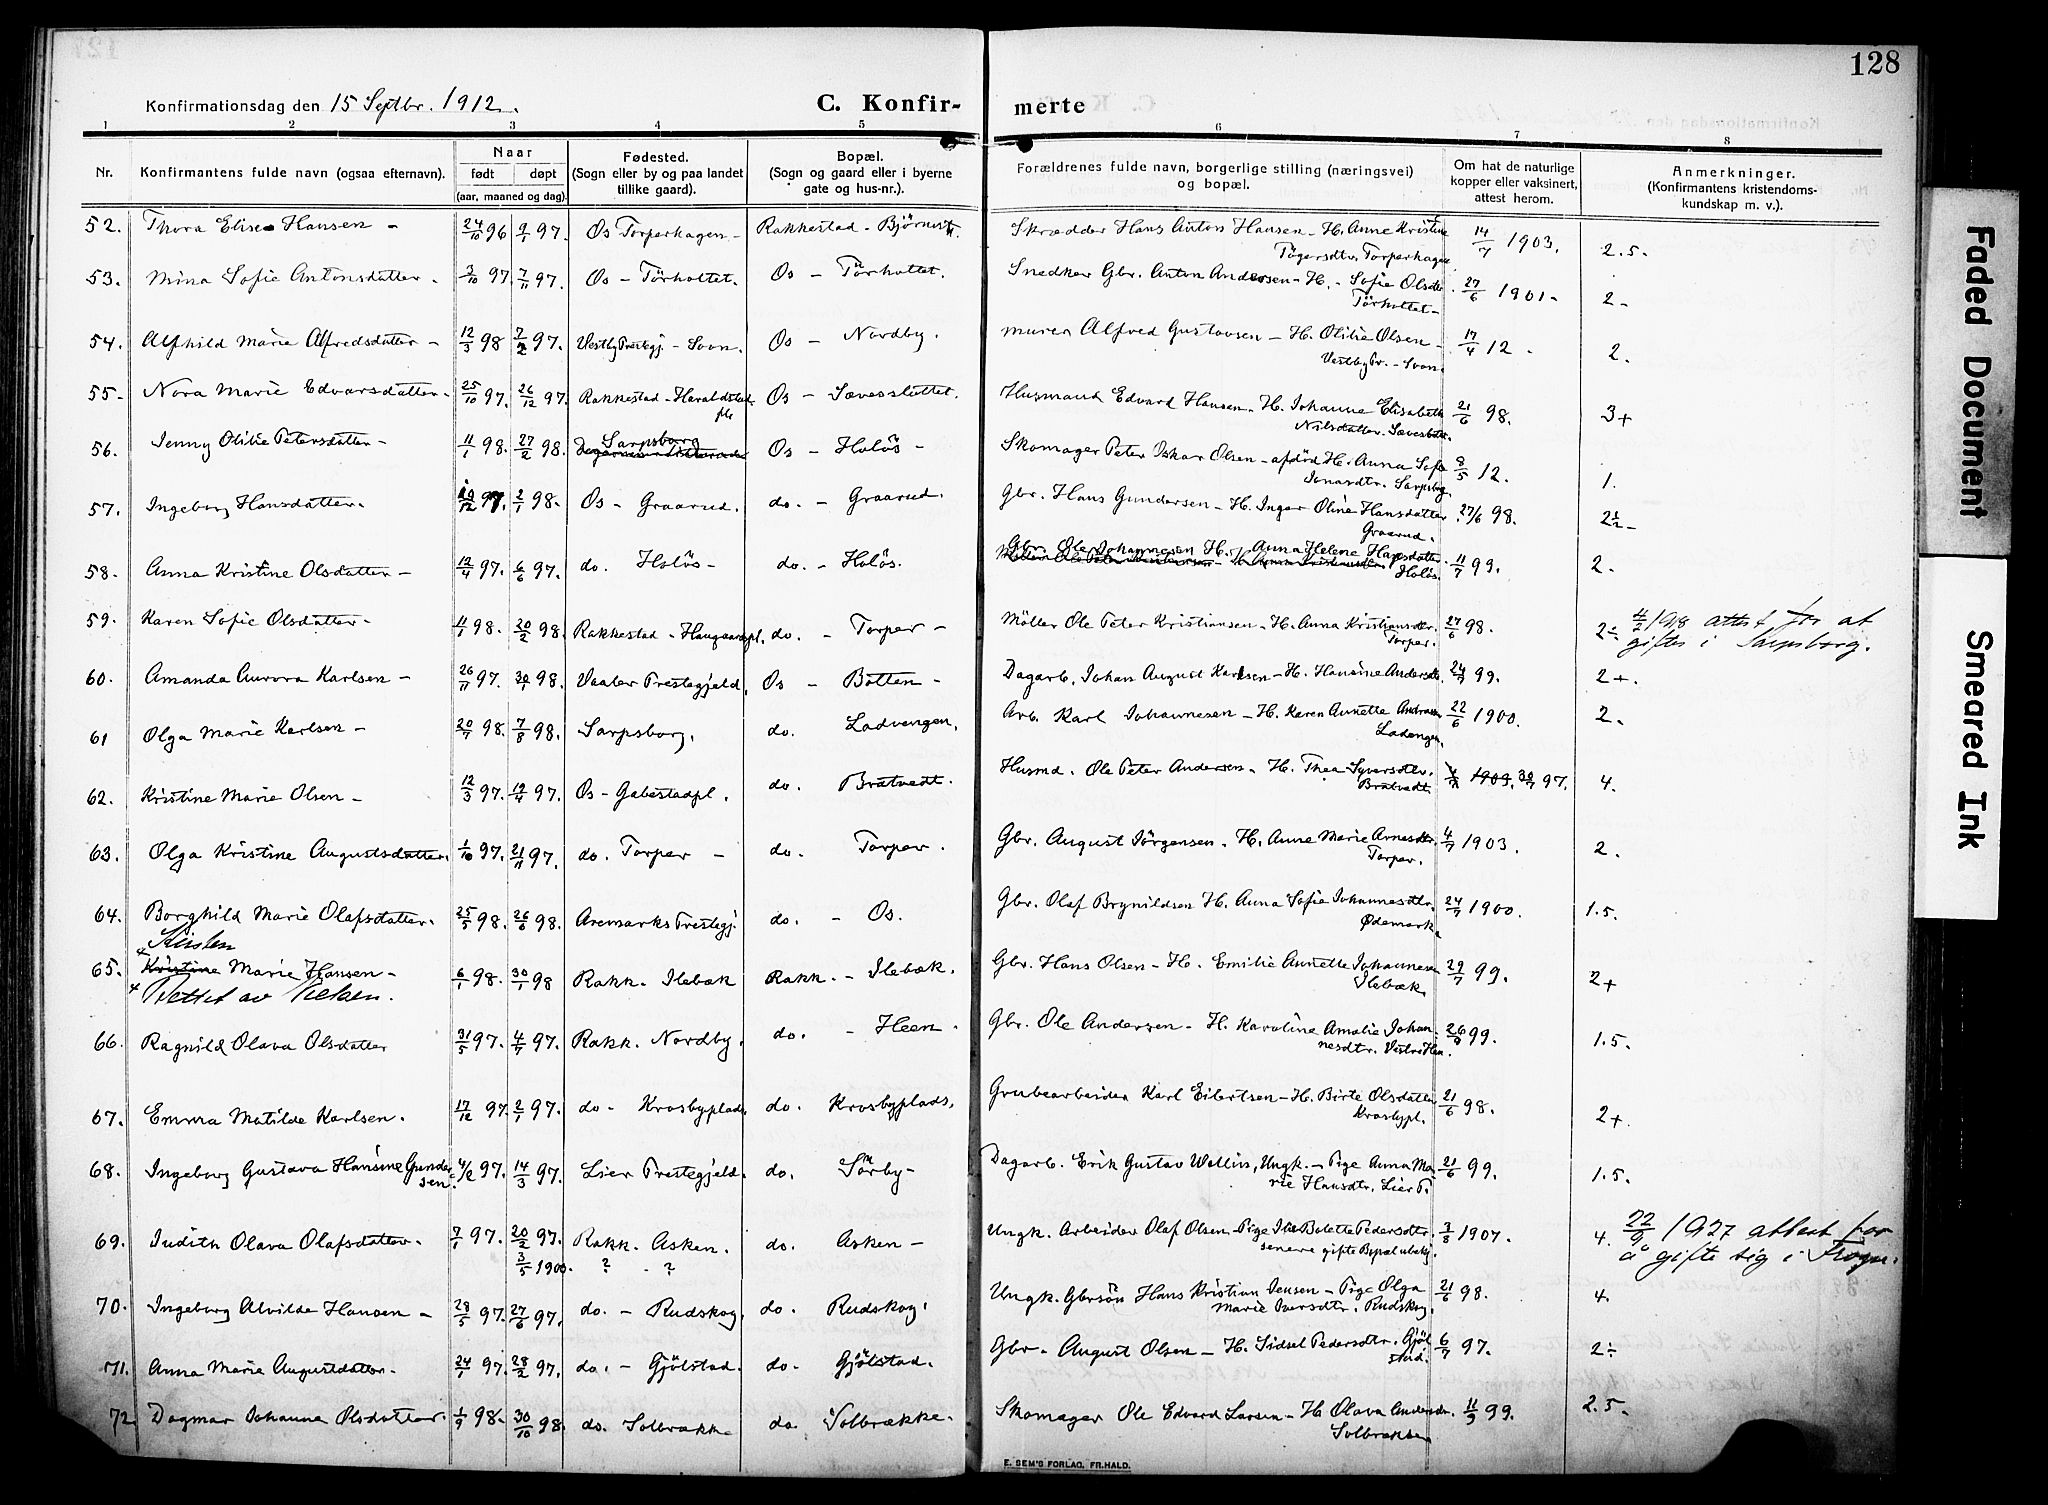 128
Konfirmationsdag den 15 Septbr. 1912.
C. Konfir-
merte
1 2 3 4 5 6 7 8
Nr. Konfirmantens fulde navn (ogsaa efternavn). Naar født døpt (aar, maaned og dag). Fødested. (Sogn eller by og paa landet tillike gaard). Bopæl. (Sogn og gaard eller i byerne gate og hus-nr.). Forældrenes fulde navn, borgerlige stilling (næringsvei) og bopæl. Om hat de naturlige kopper eller vaksinert, attest herom. Anmerkninger. (Konfirmantens kristendoms-kundskap m. v.).
52. Thora Elise Hansen – 24/10 96 97. Os Torperhagen – Rakkestad – Skrædder Hans Anton Hansen – H. Anne Kristine 14/7 1903. 2.5.
Tögersdtr. Torperhagen
53. Mina Sofie Antonsdatter. 3/10 97. 7/11 97. Os – Törholtet. Os – Törholtet. Snedker Gbr. Anton Andersen – H. – Sofie Olsdtr. 27/6 1901 – 2 –
Törholtet –
54. Alfhild Marie Alfredsdatter – 12/3 98 97. Vestby Prestegj – Soon. Os – Nordby. Murer Alfred Gustavsen – H. Otilie Olsen – 17/4 12. 2.
Vestby Pr. – Soon.
55 – Nora Marie Edvarsdatter – 25/10 97. 26/12 97. Rakkestad – Haraldstad Os – Sævesslottet. Husmand Edvard Hansen – H. Johanne Elisabeth 21/6 98. 3+
Nilsdatter
56. Jenny Otilie Petersdatter – 11/1 98. 27/2 98. Sarpsborg Os – Holös – Skomager Peter Oskar Olsen – afdöd H. Anna Sofie 8/5 12. 1.
Jonasdtr. Sarpsbg.
57. Ingeborg Hansdatter. 97. 2/1 98. Os – Graarud. do. – Graarud. Gbr. Hans Gundersen – H. Inger Oline Hansdatter 27/6 98. 2½ –
Graarud.
58. Anna Kristine Olsdatter – 12/4 97. 6/6 97. do. Holös – do. – Holös. Gbr. Ole Johannesen H. Anna Helene Hansdatter. 11/7 99. 2.
Holös.
59. Karen Sofie Olsdatter – 11/1 98. 20/2 98. Rakkestad – Haugaardspl. do. – Torper – Möller Ole Peter Kristiansen – H. Anna Kristiansdtr. 27/6 98. 2÷ 4/2 1918 attest for at
Torper.
giftes i Sarpsborg.
60. Amanda Aurora Karlsen – 26/11 97. 98. Vaaler Prestegjeld. Os – Botten – Dagarb. Johan August Karlsen – H. Hansine Andersdt. 99. 2+.
61 Olga Marie Karlsen – 20/7 98. 7/8 98. Sarpsborg. do. Ladvengen. Arb. Karl Johannesen – H. Karen Annette 22/6 1900. 2.
Ladengen.
62. Kristine Marie Olsen – 12/3 97. 19/4 97. Os – Gabestadpl. do. Bratvedt. Husmd. Ole Peter Andersen – H. Thea Syversdtr. 1909. 97. 4.
Bratvedt
63. Olga Kristine Augustsdatter. 1/10 97. 21/11 97. do. Torper – do. Torper. Gbr. August Jörgensen. H. Anne Marie Arnesdtr. 4/7 1903. 2.
Torper.
64. Borghild Marie Olafsdatter. 25/5 98. 26/6 98. Aremarks Prestegj. do. – Os. Gbr. Olaf Brynildsen H. Anna Sofie Johannesdtr. 24/7 1900. 1.5.
Ødemark.
Kirsten
65. Kristine Marie Hansen – 6/1 98. 30/1 98 Rakk. Ilebæk Rakk. – Ilebæk. Gbr. Hans Olsen – H. Emilie Annette Johannesen 29/7 99. 2+
Rettet av Nielsen.
Ilebæk.
66. Ragnild Olava Olsdatter 31/5 97. 4/7 97. Rakk. Nordby. do. – Heen. Gbr. Ole Andersen – H. Karoline Amalie Johan- 99. 1.5.
nesdtr. Vestre Hen.
67. Emma Matilde Karlsen. 17/12 97. 2/1 97. do – Krosbyplads. do. Krosbyplads. Grubearbeider Karl Eilertsen – H. Birte Olsdatter 21/6 98. 2+.
Krosbypl.
68. Ingeborg Gustava Hansine Gunder- 97. 14/3 97. Lier Prestegjeld. do. Sörby – Dagarb. Erik Gustav Wallin, Ungk. – Pige Anna Ma- 21/6 99. 1.5.
sen. rie Hansdtr. Lier P.
69. Judith Olava Olafsdatter. 7/1 97. 20/2 97. Rakk. Asken. do. Asken – Ungk. Arbeider Olaf Olsen – Pige Bolette Pedersdtr. 3/8 1907. 4. 22/9 1927 attest for
3/5 1900. ? . ? senere gifte Bopæl ubekj.
å gifte sig i Frogn.
70. Ingeborg Alvilde Hansen – 28/5 97. 27/6 97. do. – Rudskog. do. Rudskog. Ungk. Gbrsön Hans Kristian Jensen – Pige Olga 21/6 98. 4.
Marie Iversdtr. Rudskog.
71. Anna Marie Augustdatter – 24/1 97. 28/2 97. do. – Gjölstad. do. Gjölstad. Gbr. August Olsen – H. Sidsel Pedersdtr. Gjöl 6/7 97. 2÷
stad.
72 Dagmar Johanne Olsdatter. 1/9 98. 30/10 98. do. Solbrække do. Solbrække. Skomager Ole Edvard Larsen – H. Olava Andersdr. 99. 2.5.
Solbrække
E. SEM'S FORLAG, FR.HALD.
Faded Document
Smeared Ink